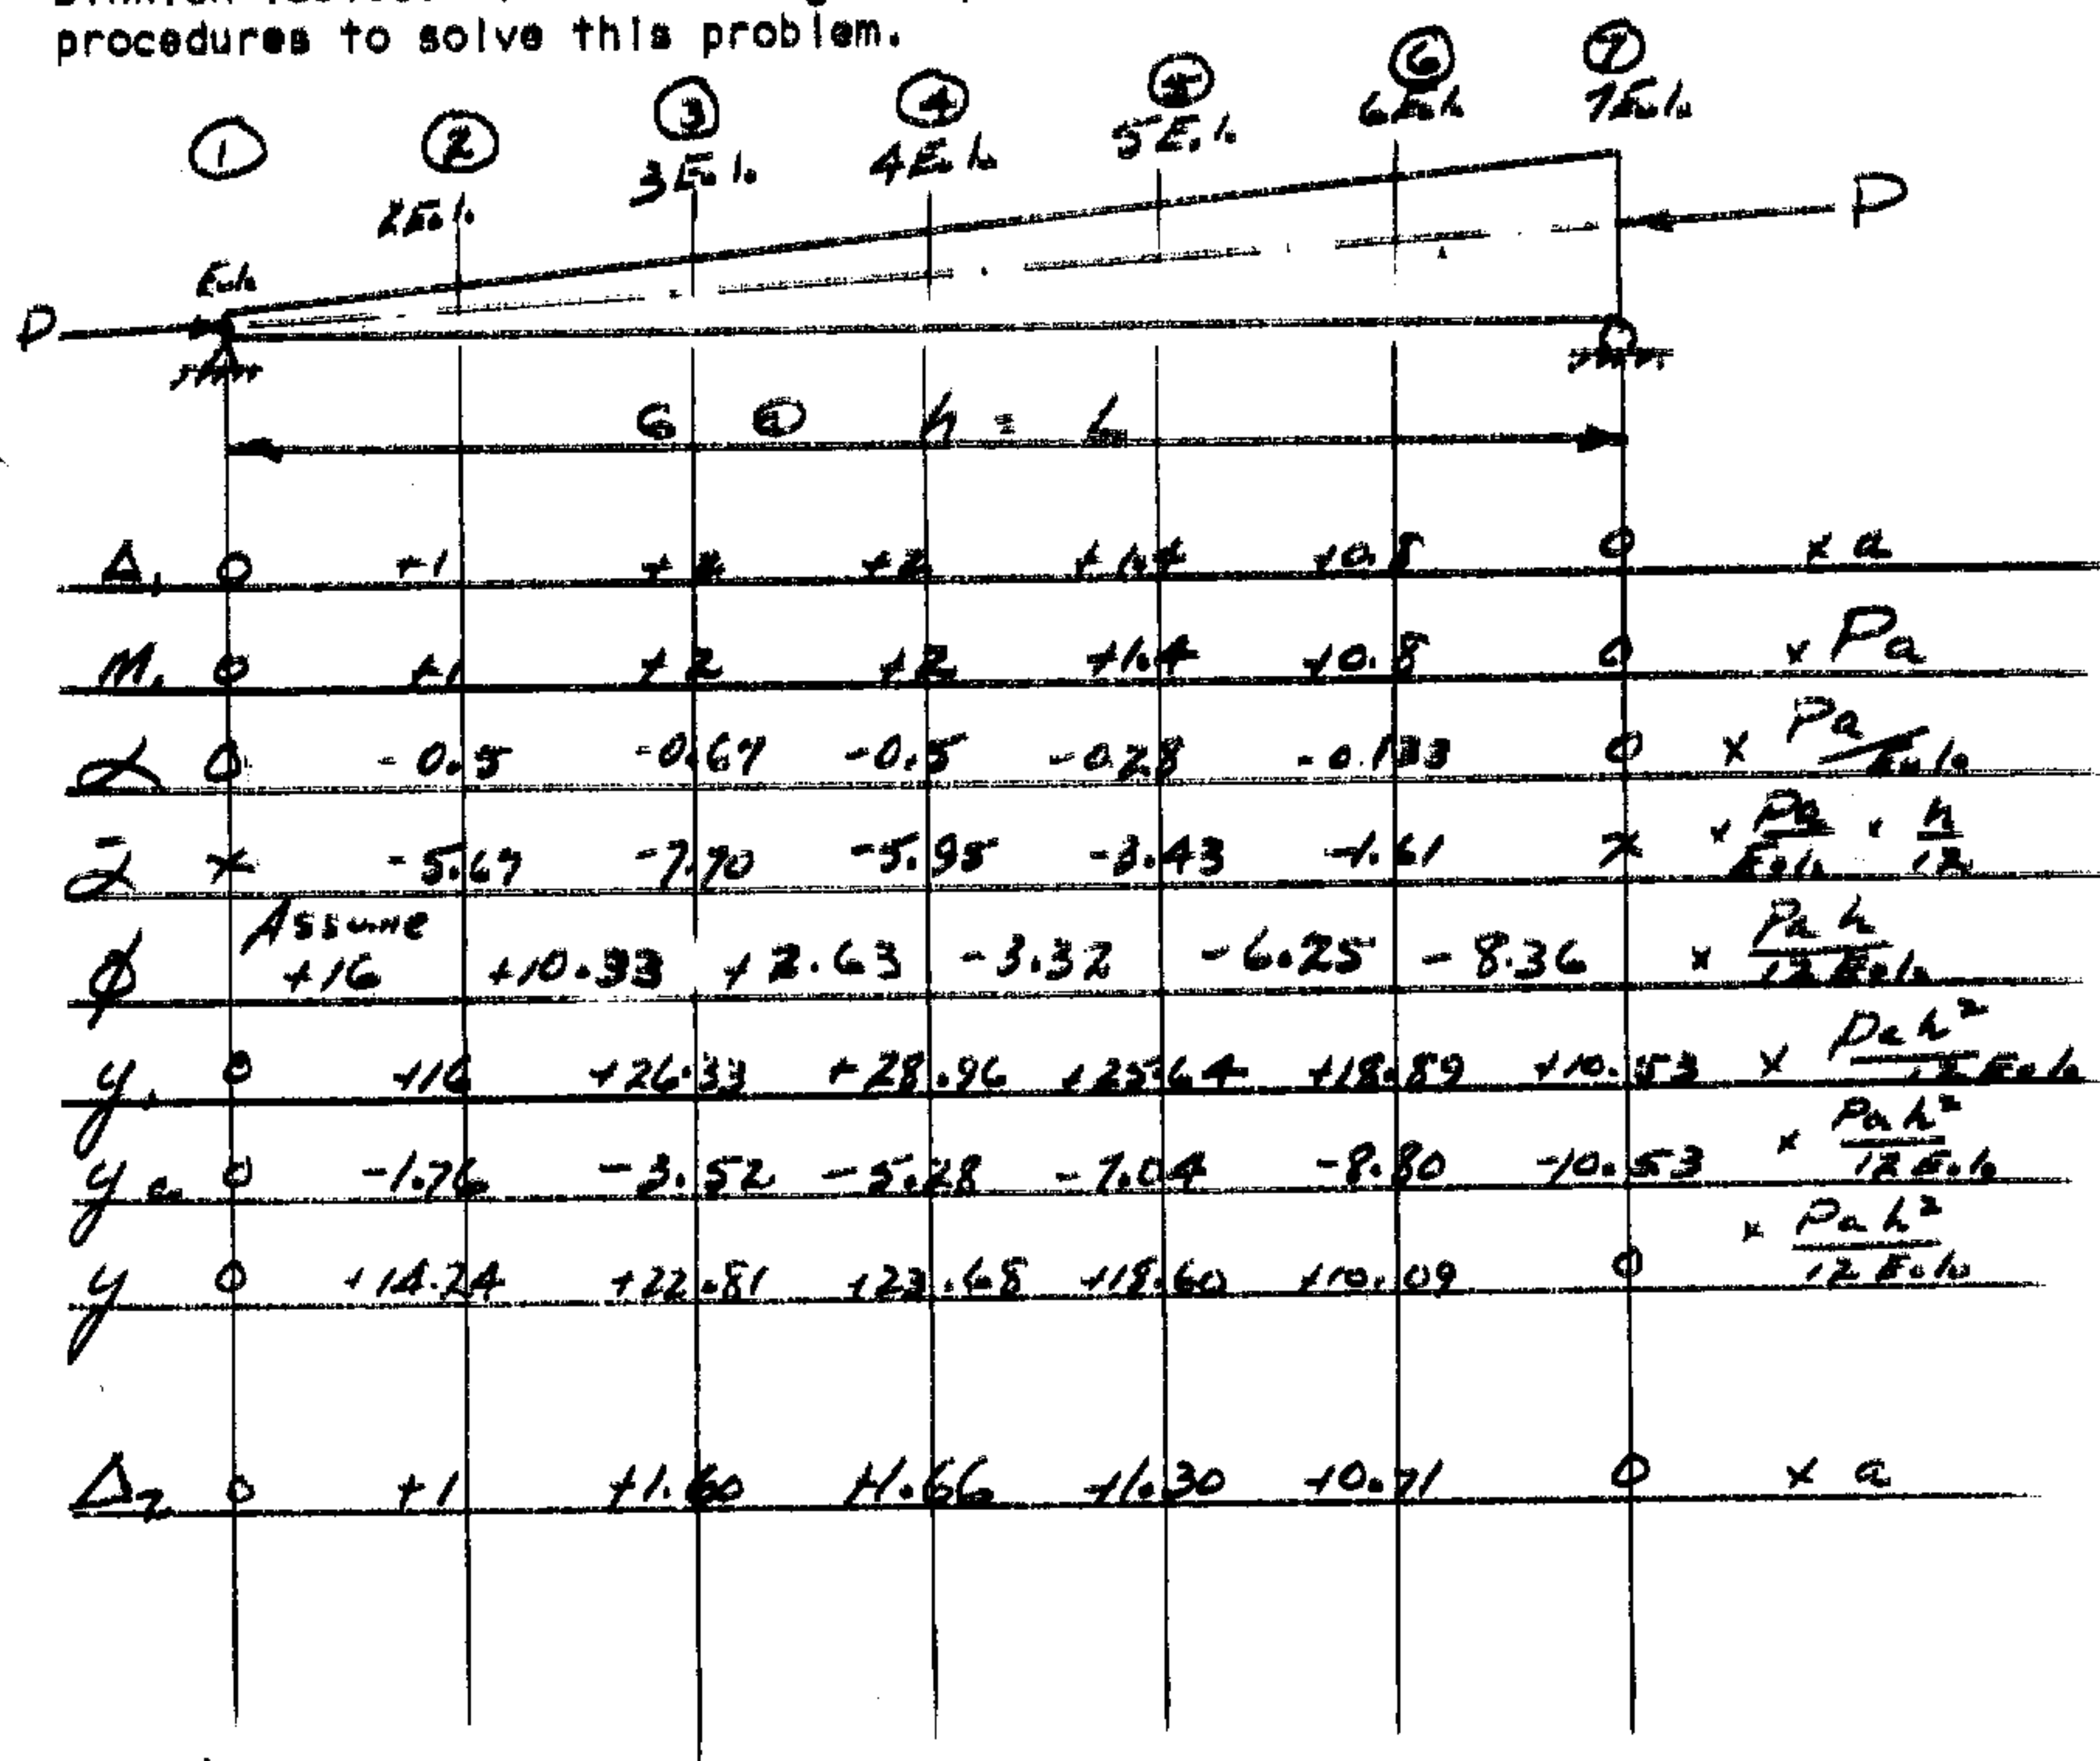 procedures to solve this problem.
① ② ③ ④ ⑤ ⑥ ⑦
E₀I₀ 2E₀I₀ 3E₀I₀ 4E₀I₀ 5E₀I₀ 6E₀I₀ 7E₀I₀
P P
6 @ h = L
Δ₁ 0 +1 +2 +2 +1.4 +0.8 0 x a
M₁ 0 +1 +2 +2 +1.4 +0.8 0 x Pa
α 0 -0.5 -0.67 -0.5 -0.28 -0.133 0 x Pa/E₀I₀
ᾱ x -5.67 -7.70 -5.95 -3.43 -1.61 x x Pa/E₀I₀ · h/12
Assume
φ +16 +10.33 +2.63 -3.32 -6.25 -8.36 x Pah/12E₀I₀
y₁ 0 +16 +26.33 +28.96 +25.64 +18.89 +10.53 x Pah²/12E₀I₀
y c 0 -1.76 -3.52 -5.28 -7.04 -8.80 -10.53 x Pah²/12E₀I₀
y 0 +14.24 +22.81 +23.68 +18.60 +10.09 0 x Pah²/12E₀I₀
Δ₂ 0 +1 +1.60 +1.66 +1.30 +0.71 0 x a